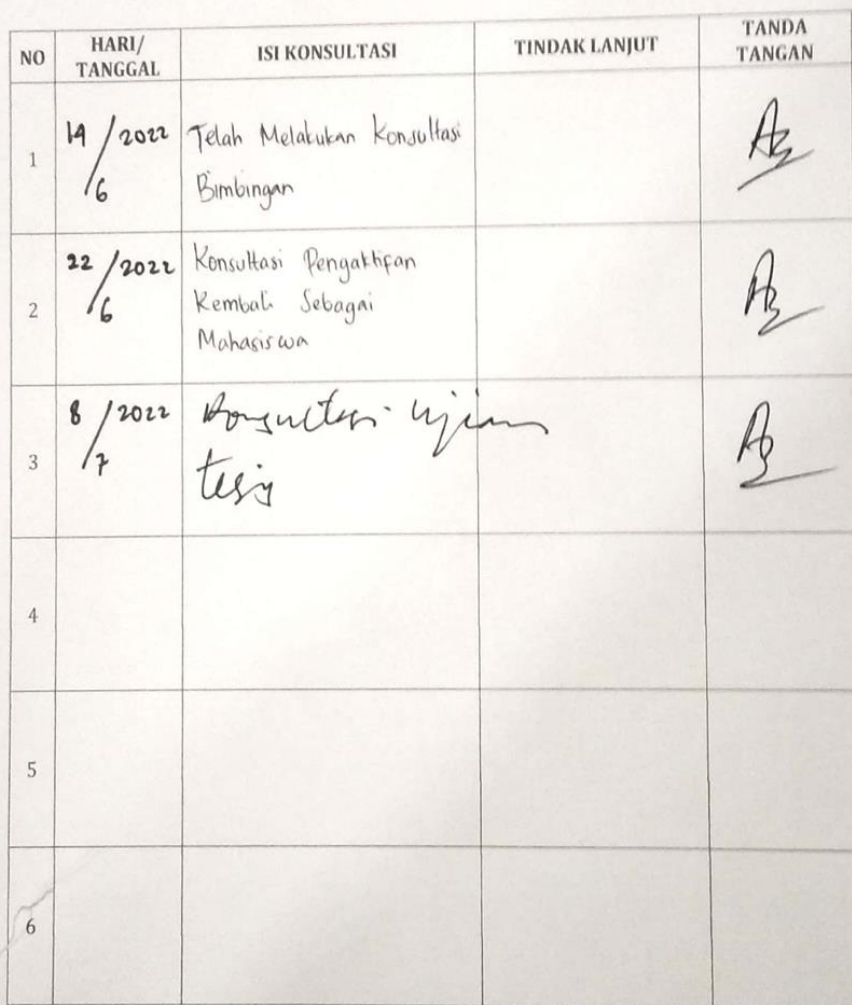 NO HARI/ TANGGAL ISI KONSULTASI TINDAK LANJUT TANDA TANGAN
1 14/6 2022 Telah Melakukan Konsultasi
Bimbingan
2 22/6 2022 Konsultasi Pengaktifan
Kembali Sebagai
Mahasiswa
3 8/7 2022 Konsultasi ujian
tesis
4
5
6